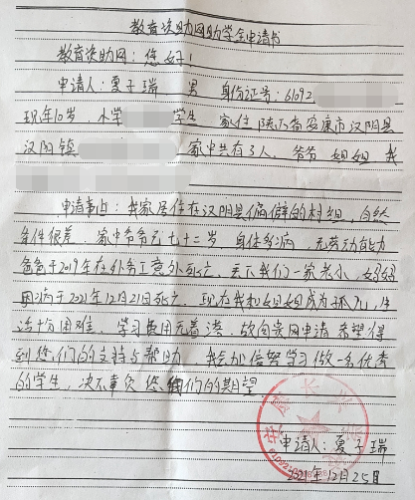 教育资助网助学金申请书
教育资助网：您好！
申请人：夏子瑞 男 身份证号：61092
现年10岁，小学 学生 家住陕西省安康市汉阴县
汉阳镇 家中共有3人，爷爷 姐姐 我
申请事由：我家居住在汉阴县偏僻的村组，自然
条件很差，家中爷爷已七十三岁 身体多病，无劳动能力
爸爸于2019年在外务工意外死亡，丢下我们一家老小，妈妈
因病于2021年12月21日死亡，现在我和姐姐成为孤儿，生
活十分困难，学习费用无着落，故向贵网申请 希望得
到您们的支持与帮助，我会加倍努学习 做一名优秀
的学生，决不辜负您们的期望
申请人：夏子瑞
2021年12月25日